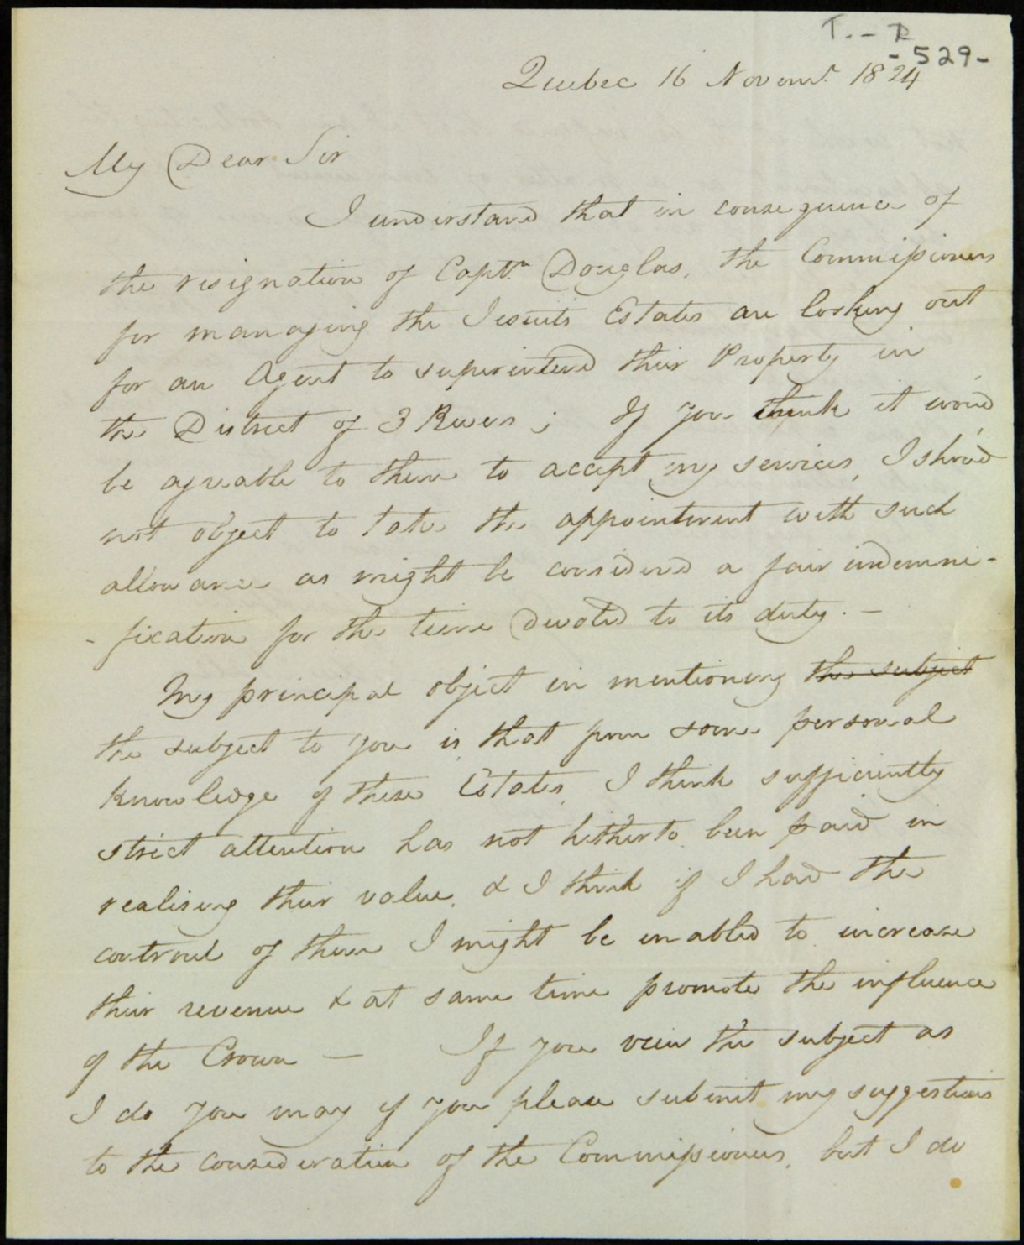 T. - R
- 529 -
Quebec 16 Novemr. 1824
My Dear Sir
I understand that in consequence of
the resignation of Captn Douglas, the Commissioners
for managing the Jesuits Estates are looking out
for an Agent to superintend their Property in
the District of 3 Rivers ; If you think it wou'd
be agreable to them to accept my services, I shou'd
not object to take the appointment with such
allowance as might be considered a fair indemni-
-fication for the time devoted to its duty. —
My principal object in mentioning the subject
the subject to you is that from some personal
knowledge of these Estates, I think sufficiently
strict attention has not hitherto been paid in
realising their value, & I think if I had the
controul of them I might be enabled to increase
their revenue & at same time promote the influence
of the Crown — If you view the subject as
I do you may if you please submit my suggestions
to the consideration of the Commissioners, but I do